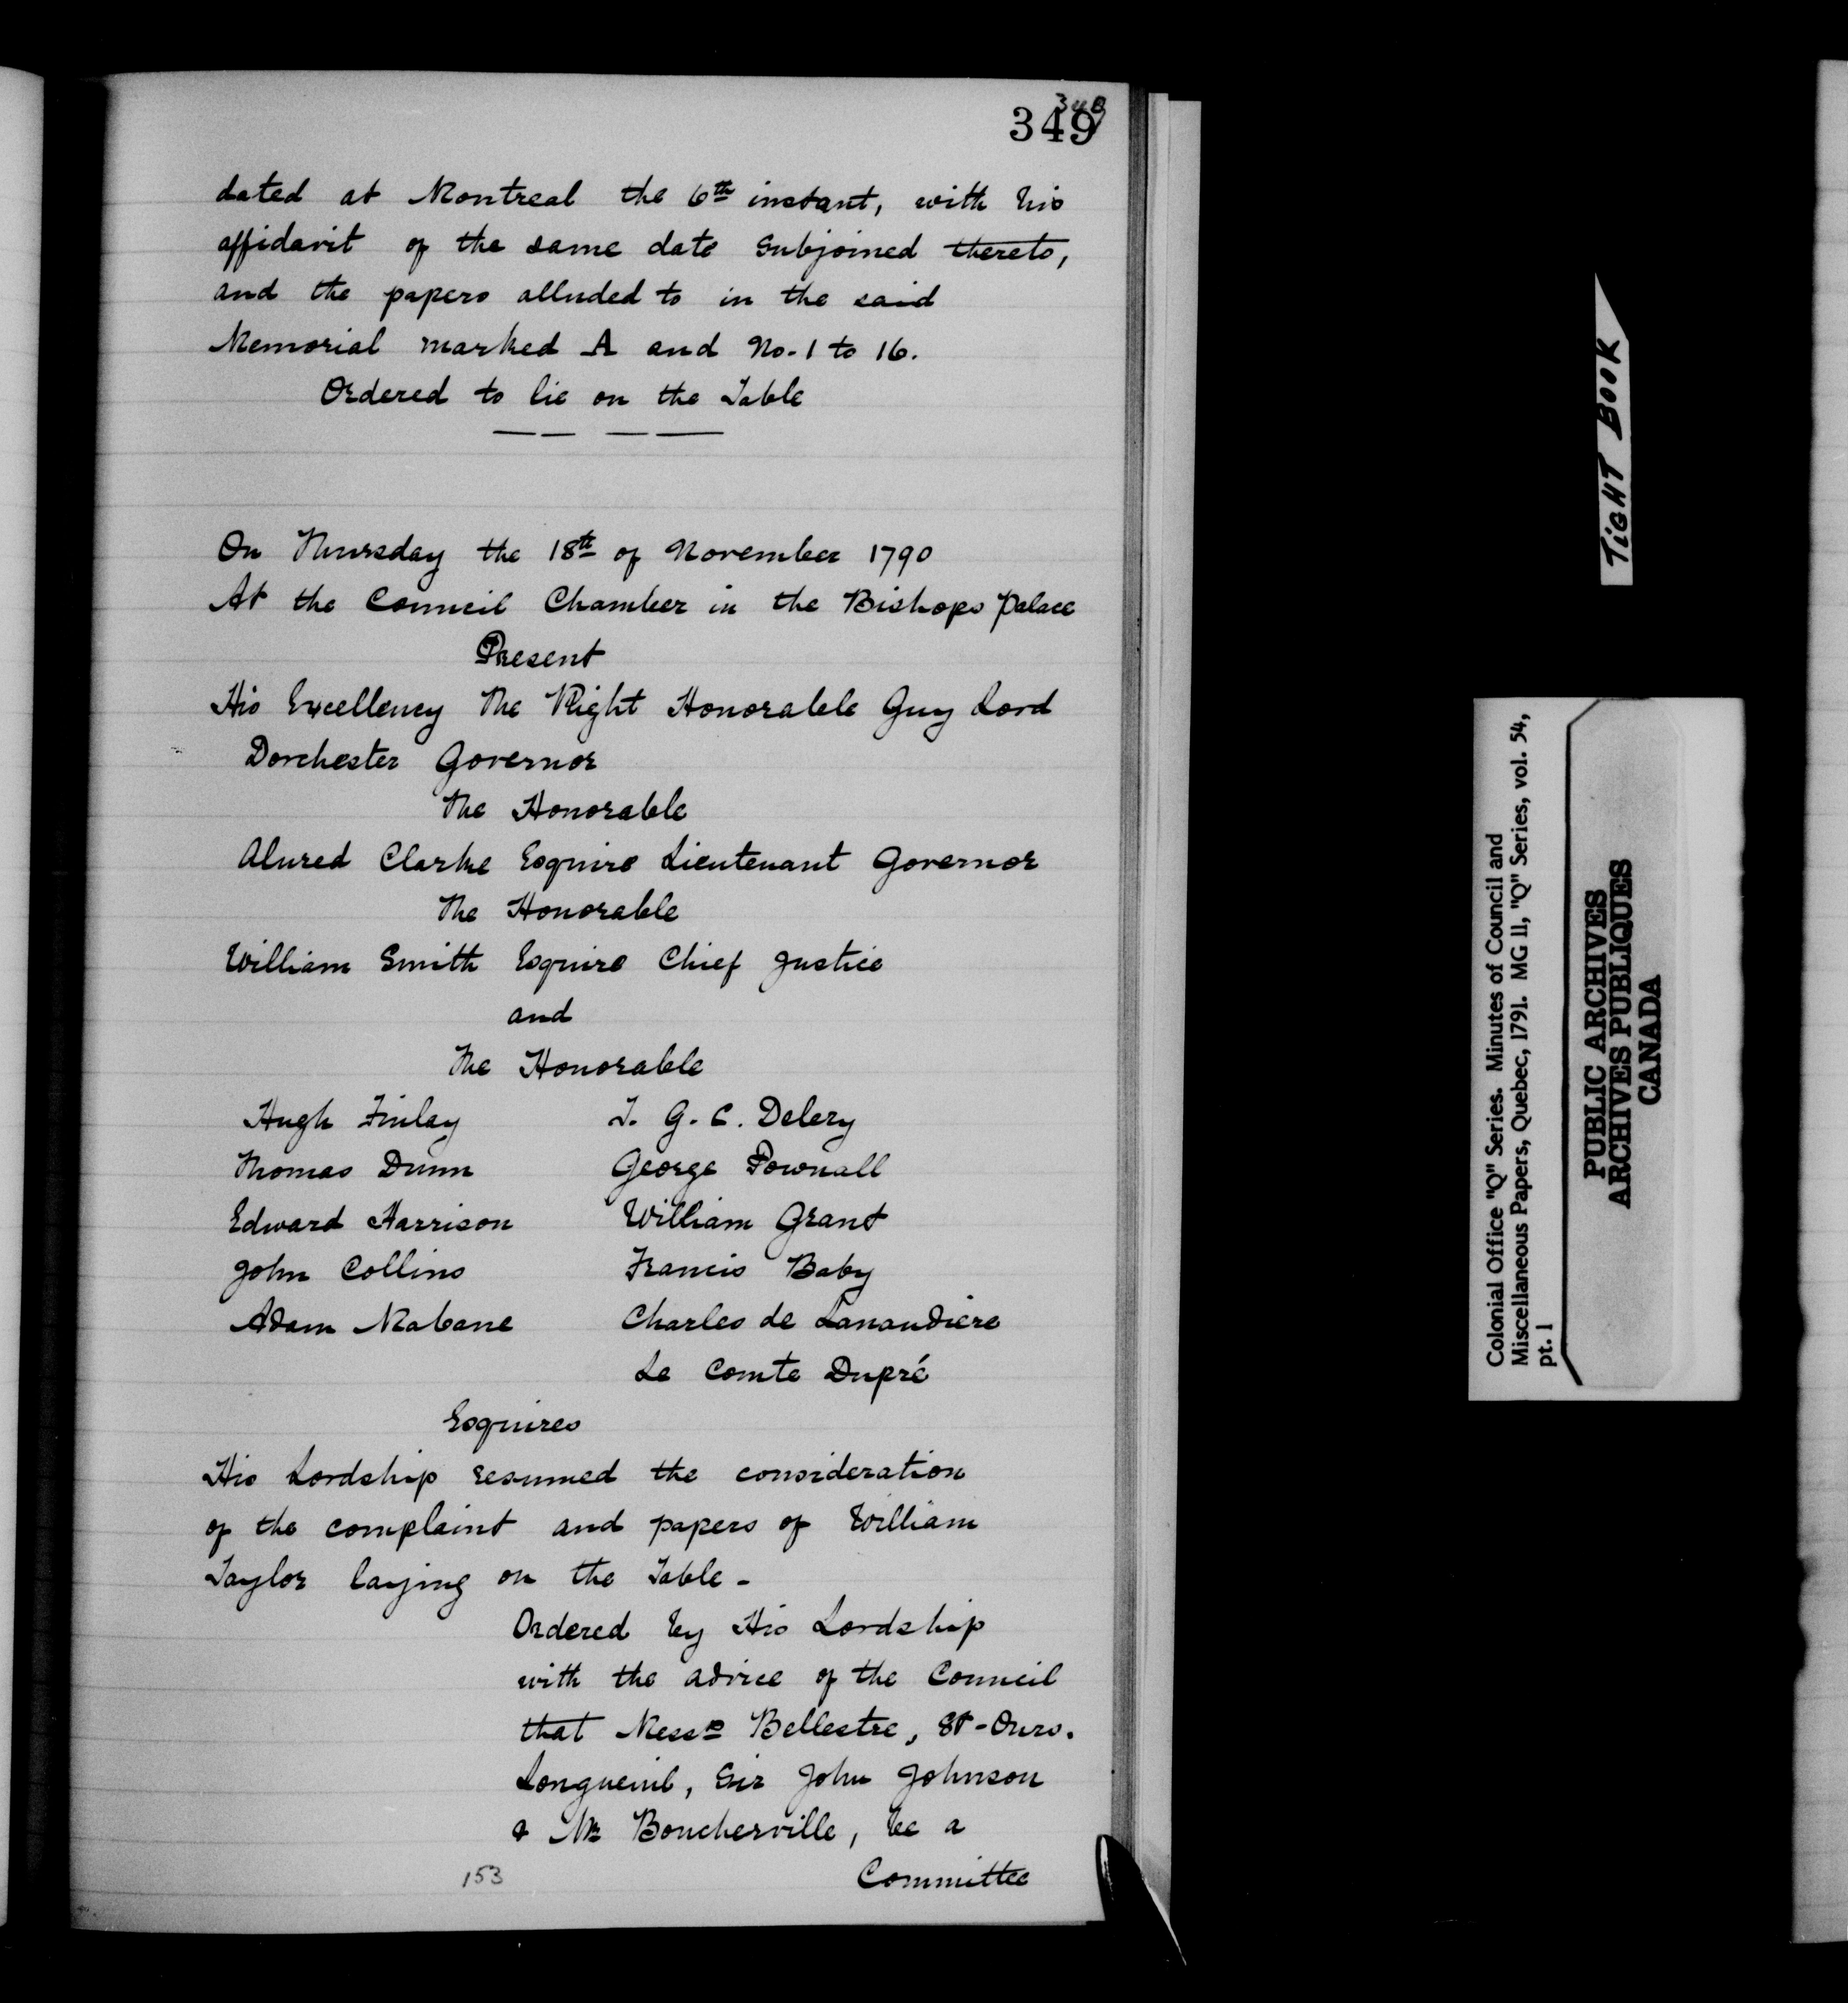 348
349
dated at Montreal the 6th instant, with his
affidavit of the same date subjoined thereto,
and the papers alluded to in the said
Memorial marked A and No. 1 to 16.
Ordered to lie on the Table
On Thursday the 18th of November 1790
At the Council Chamber in the Bishops Palace
Present
His Excellency The Right Honorable Guy Lord
Dorchester Governor
The Honorable
Alured Clarke Esquire Lieutenant Governor
The Honorable
William Smith Esquire Chief Justice
and
The Honorable
Hugh Finlay J. G. C. Delery
Thomas Dunn George Pownall
Edward Harrison William Grant
John Collins Francis Baby
Adam Mabane Charles de Lanaudiere
Le Comte Dupré
Esquires
His Lordship resumed the consideration
of the complaint and papers of William
Taylor laying on the Table -
Ordered by His Lordship
with the advice of the Council
that Messrs Bellestre, St-Ours.
Longueuil, Sir John Johnson
& Mr Boucherville, be a
Committee
153
TIGHT BOOK
Colonial Office "Q" Series. Minutes of Council and
Miscellaneous Papers, Quebec, 1791. MG 11, "Q" Series, vol. 54,
pt. 1
PUBLIC ARCHIVES
ARCHIVES PUBLIQUES
CANADA